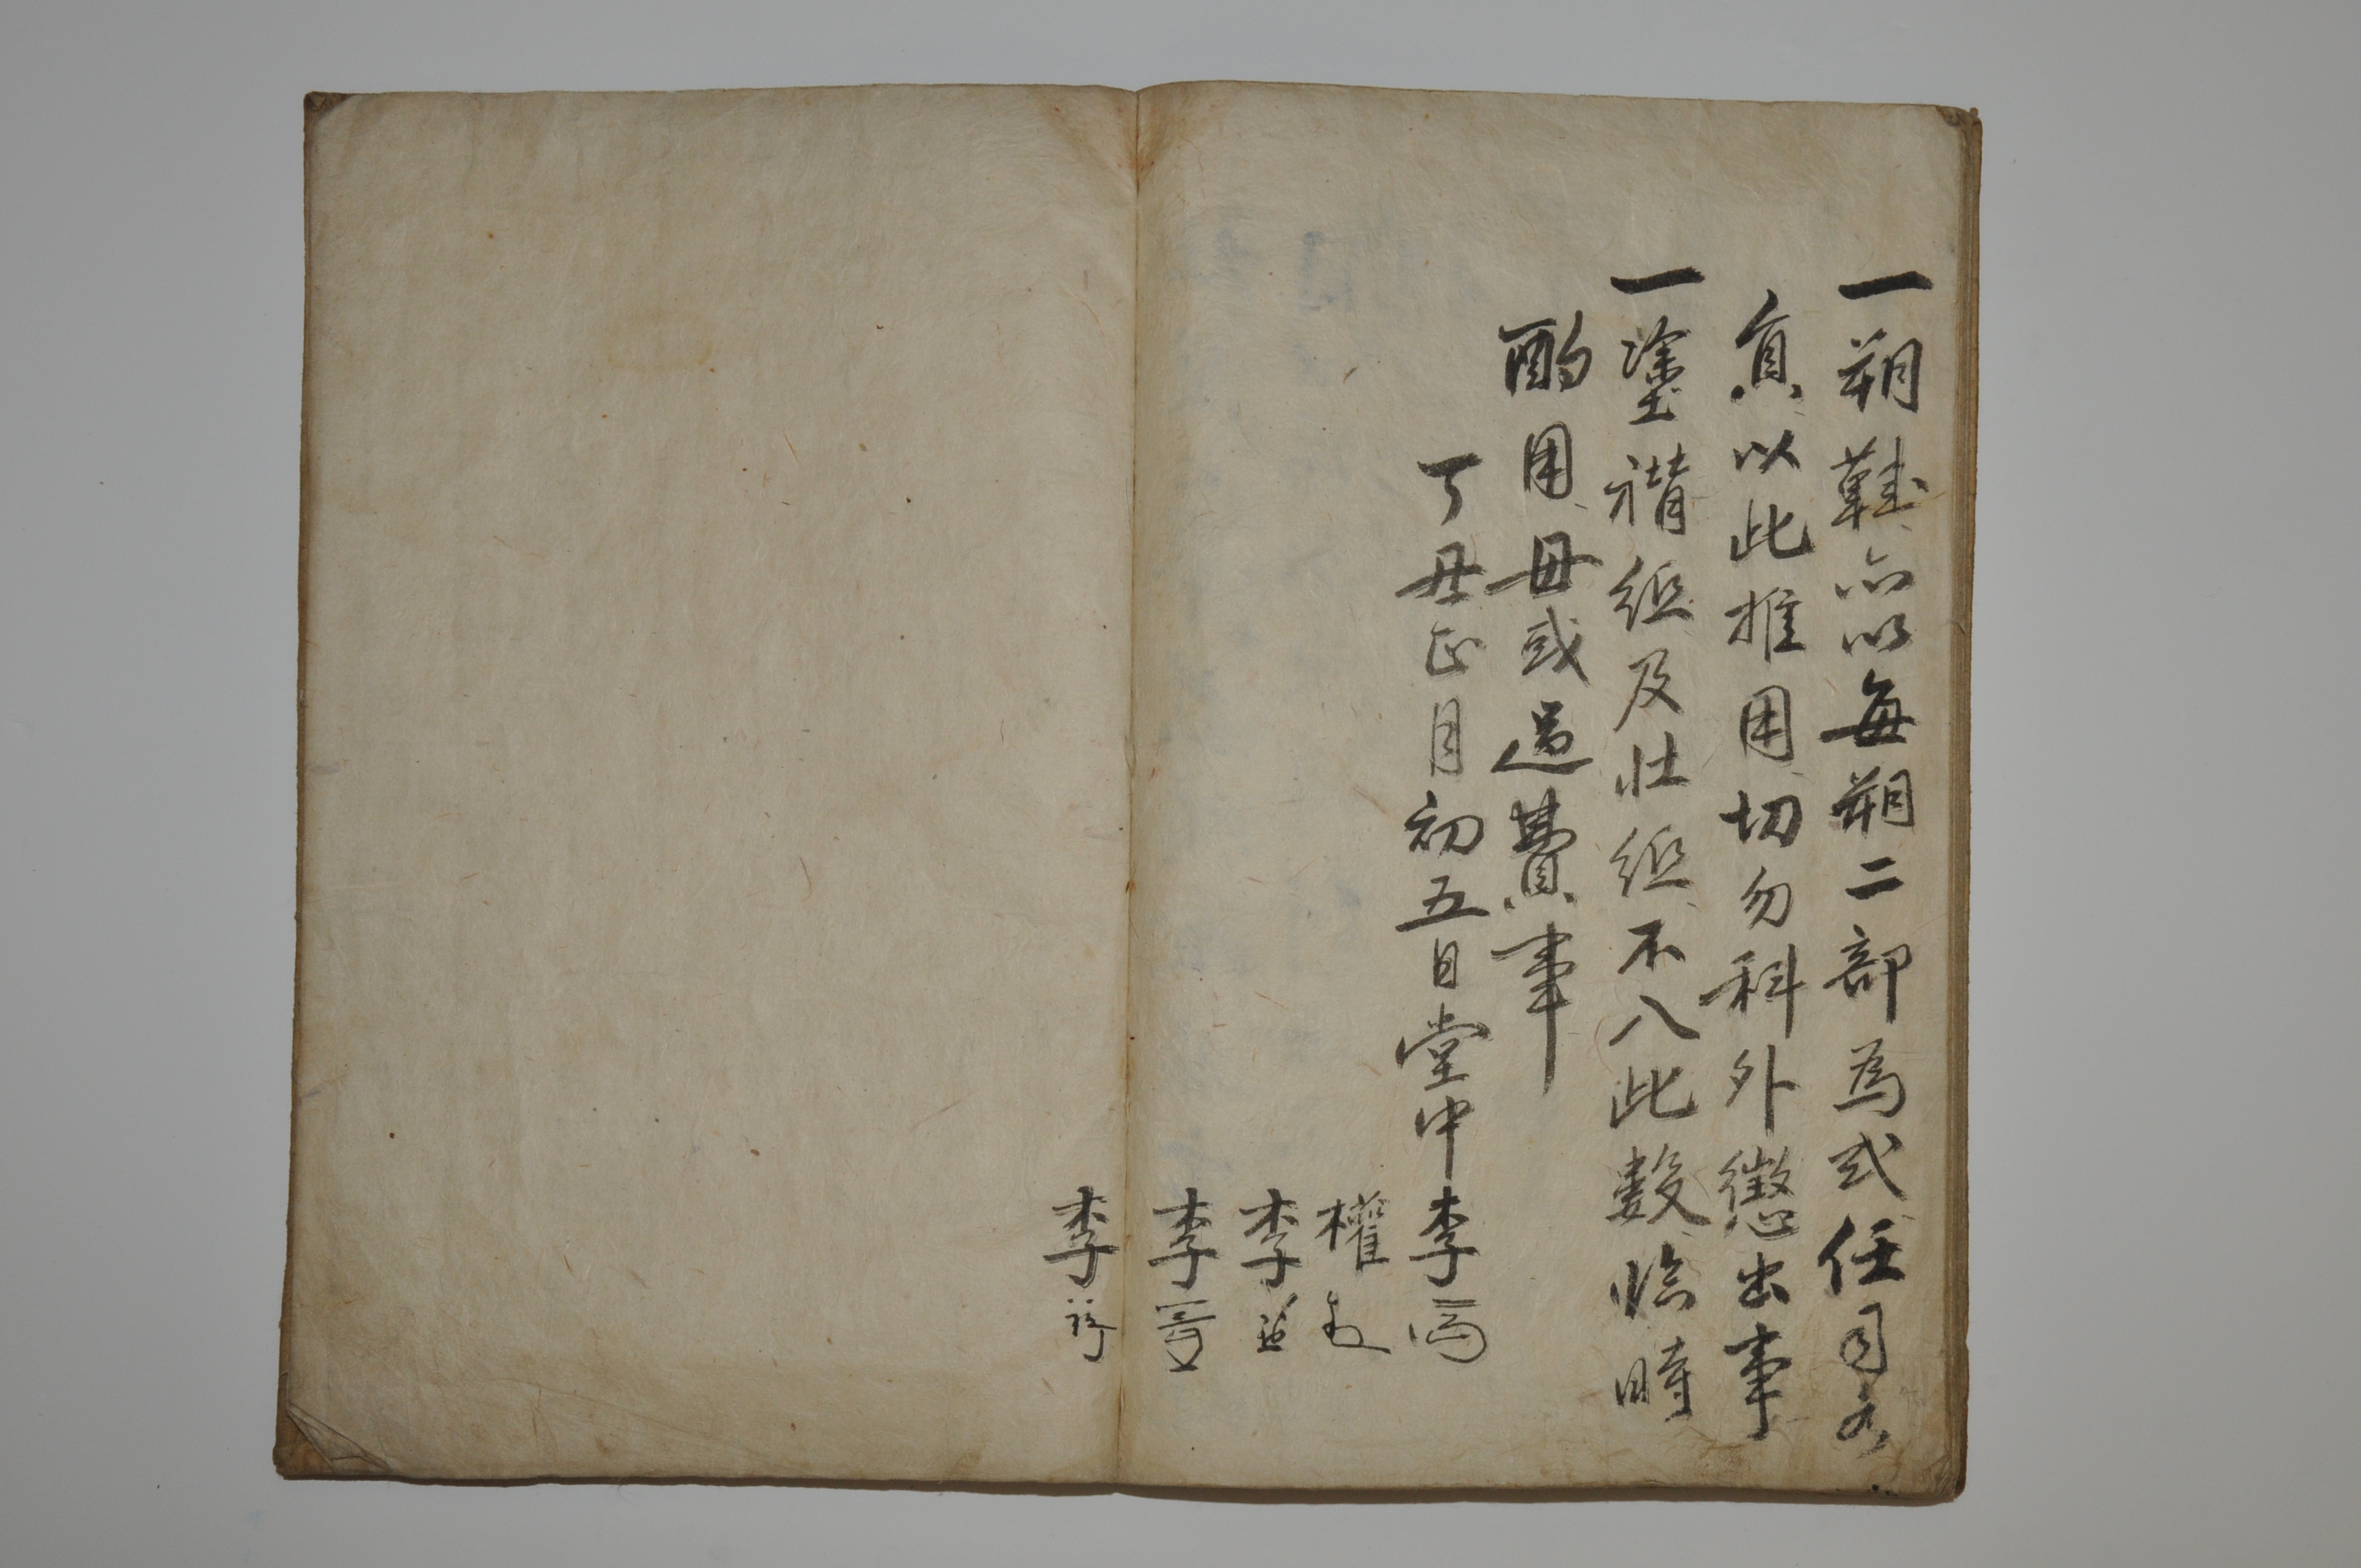 一朔鞋亦以每朔二部爲式任司各
員以此推用切勿科外懲出事
一塗褙紙及壯紙不入此數臨時
酌用毋或過費事
丁丑正月初五日堂中李
權
李
李
李